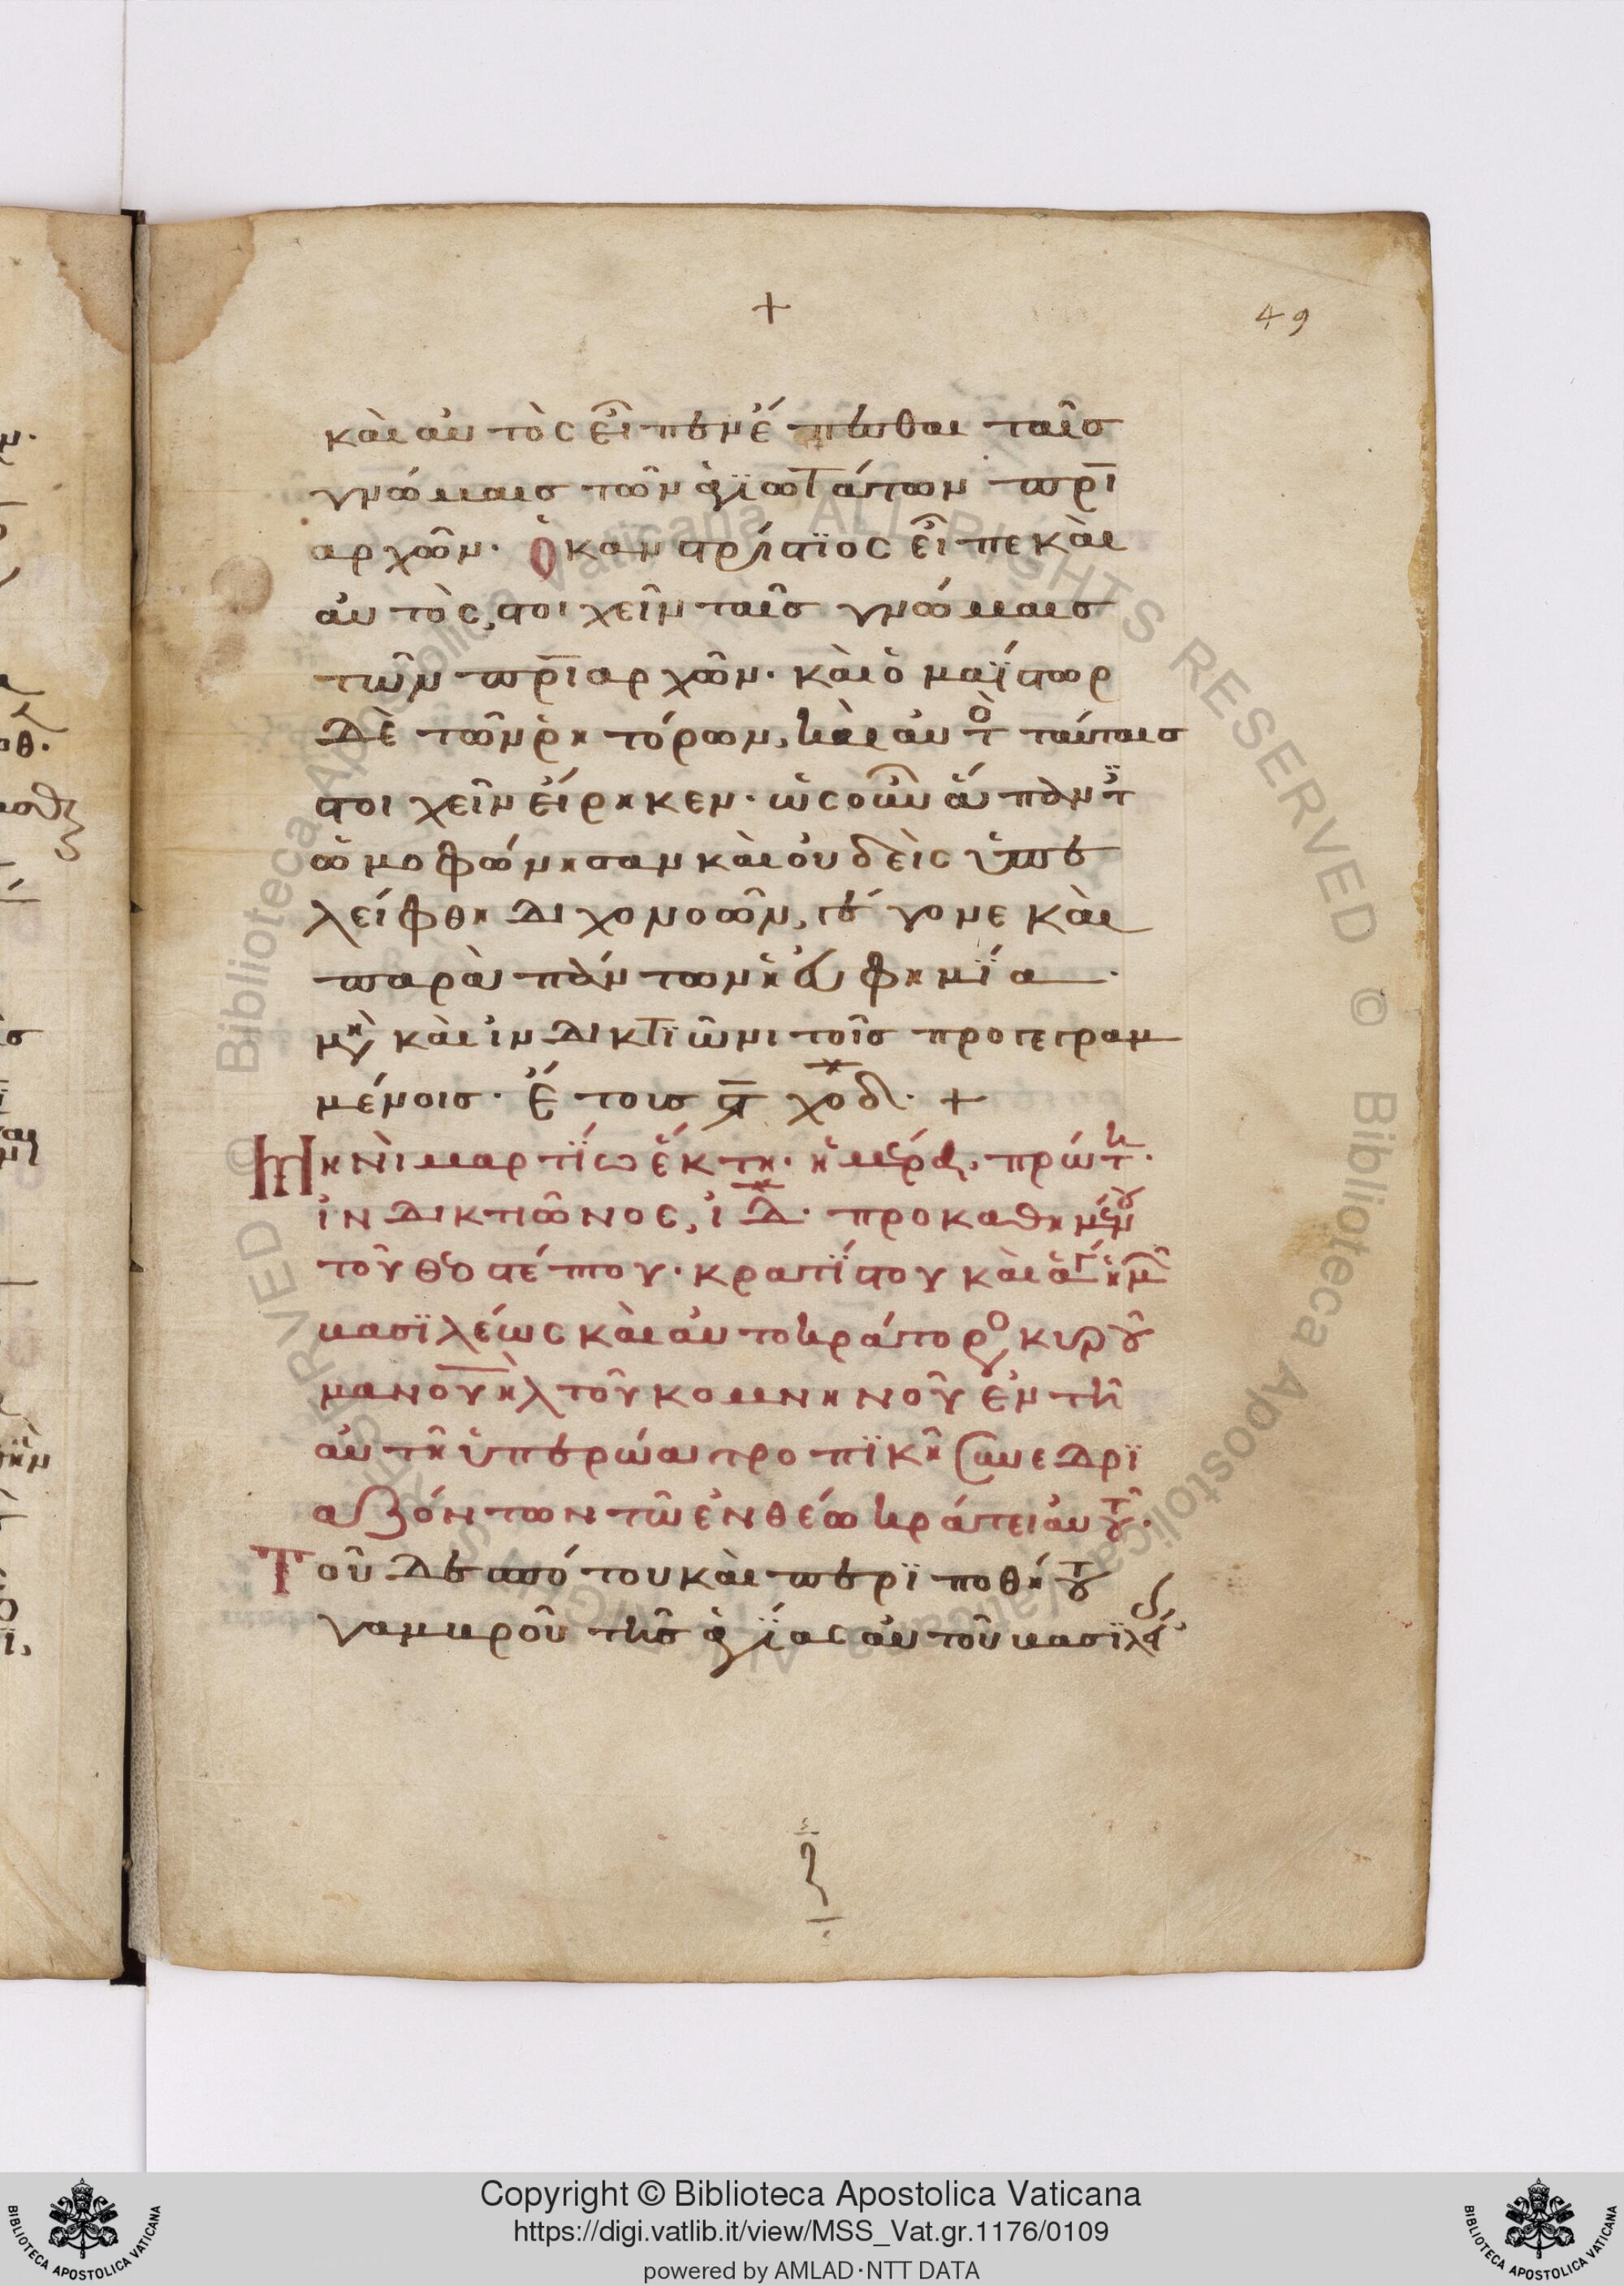 +
49
καὶ αὐτὸς εἶπεν ἕπεσθαι ταῖς
γνώμαις τῶν ἁγιωτάτων πρι
αρχῶν· ὁ καναστρίσιος εἶπε καὶ
αὐτὸς, στοιχεῖν ταῖς γνώμαις
τῶν πριαρχῶν· καὶ ὁ μαΐστωρ
δὲ τῶν ῥητόρων, καὶ αὐτὸ ταύταις
στοιχεῖν εἴρηκεν· ὡς οὖν ἅπαντ
ὡμοφώνησαν καὶ οὐδεὶς ὑπε
λείφθη διχονοῶν, γέγονε καὶ
παρὰ πάντων ἡ εὐφημία·
μὴ καὶ ἰνδικτιῶνι τοῖς προγεγραμ
μένοις· ἔτους ϛ̅ χοδ· +
Μηνὶ μαρτίω ἕκτη· ἡμέρα, πρώτ·
ἰνδικτιῶνος, ιδ· προκαθημένου
τοῦ θεοστέπτου· κρατίστου καὶ ἁγ ἡμ
βασιλέως καὶ αὐτοκράτορο κυροῦ
μανουὴλ τοῦ κομνηνοῦ ἐν τῆ
αὐτῆ ὑπερώω προπικῆ συνεδρι
αζόντων τῶ ἐνθέω κράτει αὐτοῦ·
Τοῦ δεσπότου καὶ περιποθήτου
γαμβροῦ τῆς ἁγίας αὐτοῦ βασιλεί
Copyright © Biblioteca Apostolica Vaticana
https://digi.vatlib.it/view/MSS_Vat.gr.1176/0109
powered by AMLAD·NTT DATA
BIBLIOTECA APOSTOLICA VATICANA
BIBLIOTECA APOSTOLICA VATICANA
© Biblioteca Apostolica Vaticana ALL RIGHTS RESERVED © Biblioteca Apostolica Vaticana ALL RIGHTS RESERVED